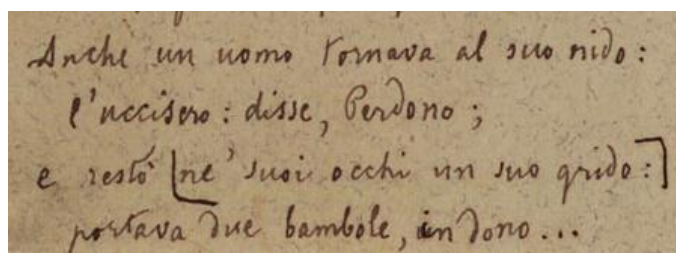 Anche un uomo tornava al suo nido:
l'uccisero: disse, Perdono;
e restò [ne' suoi occhi un suo grido:]
portava due bambole, in dono...